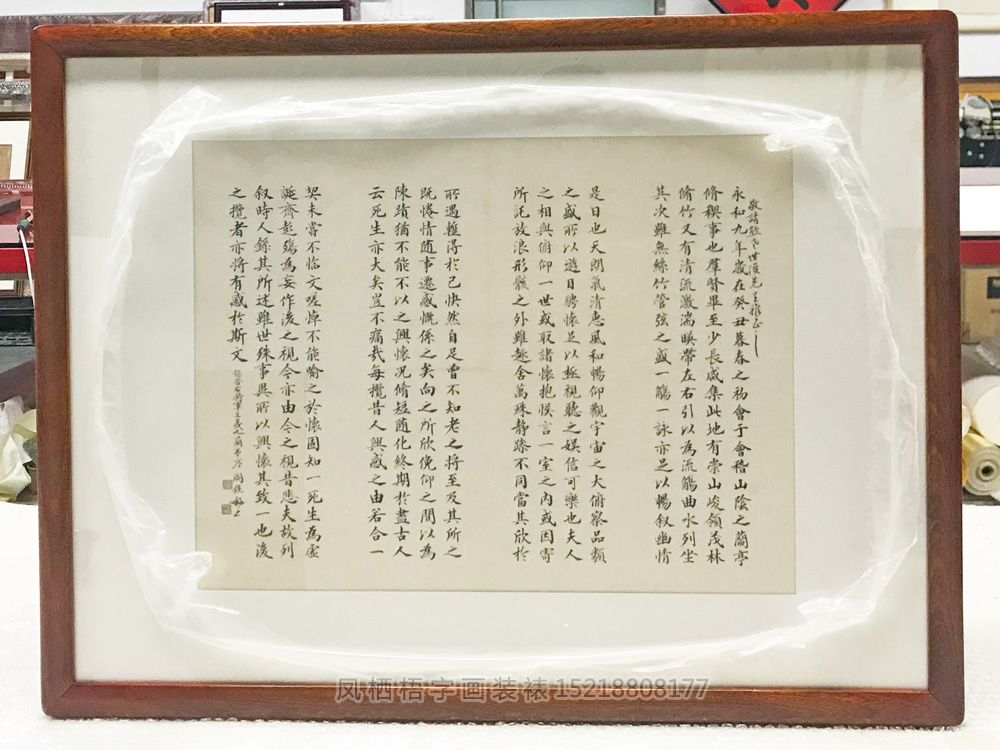 敬請
先生雅正
永和九年歲在癸丑暮春之初會于會稽山陰之蘭亭
脩稧事也羣賢畢至少長咸集此地有崇山峻領茂林
脩竹又有清流激湍暎帶左右引以為流觴曲水列坐
其次雖無絲竹管弦之盛一觴一詠亦足以暢叙幽情
是日也天朗氣清惠風和暢仰觀宇宙之大俯察品類
之盛所以遊目騁懷足以極視聽之娛信可樂也夫人
之相與俯仰一世或取諸懷抱悮言一室之內或因寄
所託放浪形骸之外雖趣舍萬殊静躁不同當其欣於
所遇蹔得於己快然自足曾不知老之將至及其所之
既惓情隨事遷感慨係之矣向之所欣俛仰之間以為
陳蹟猶不能不以之興懷況脩短隨化終期於盡古人
云死生亦大矣豈不痛哉每攬昔人興感之由若合一
契未嘗不臨文嗟悼不能喻之於懷固知一死生為虛
誕齊彭殤為妄作後之視今亦由今之視昔悲夫故列
叙時人錄其所述雖世殊事異所以興懷其致一也後
之攬者亦將有感於斯文
晉右將軍王羲之蘭亭序
凤栖梧字画装裱15218808177